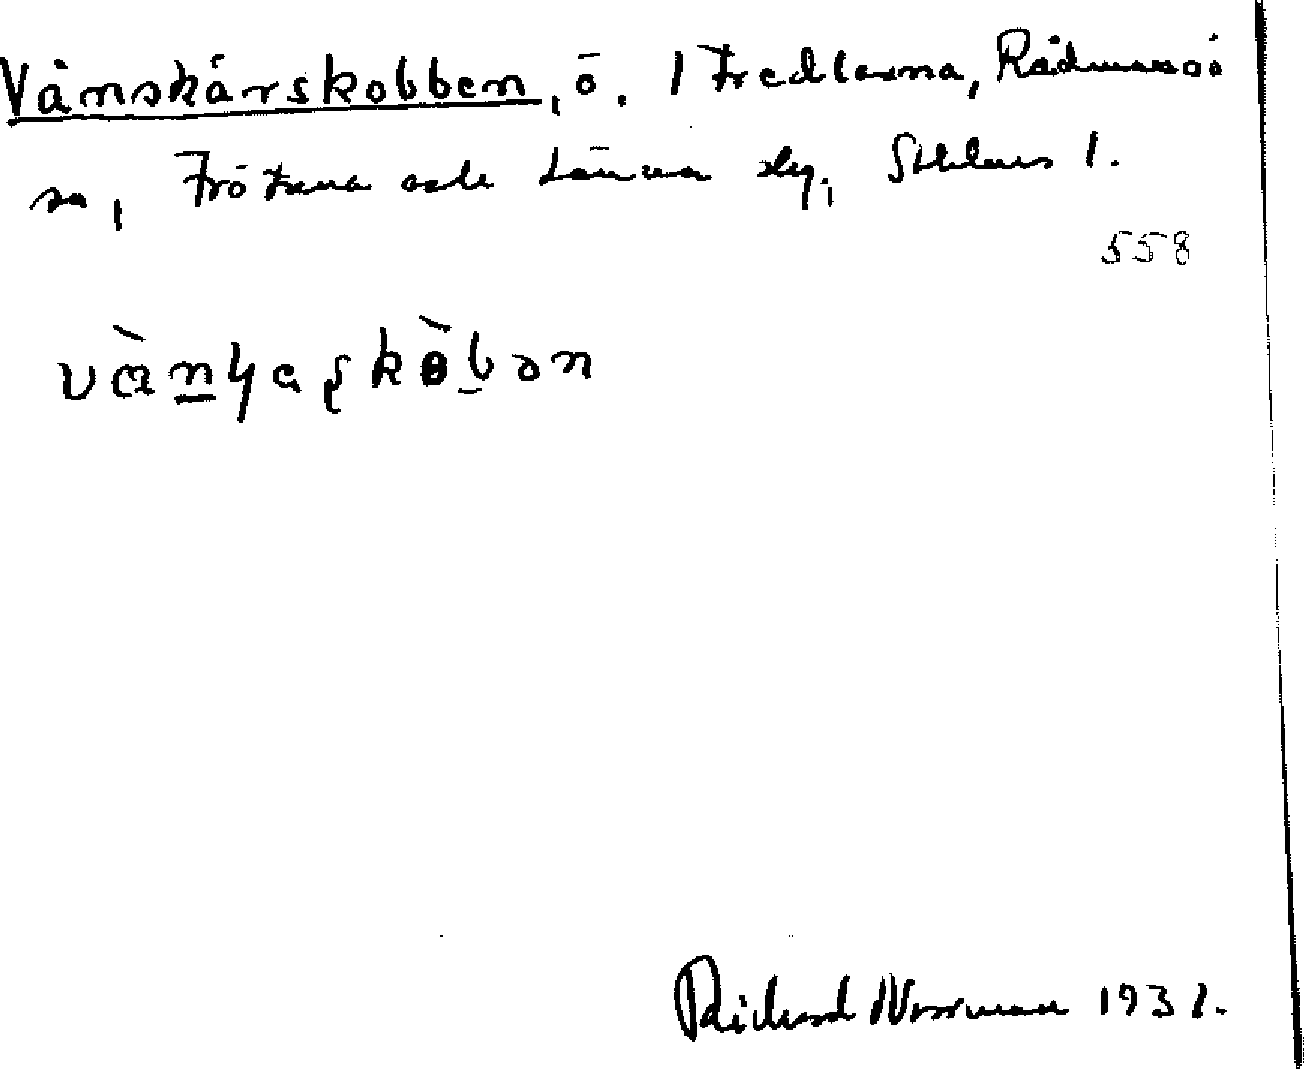 Vänskärskobben, ö. 1 Fredlarna, Rådmansö
sn, Frötuna och Länna slg, Sthlms l.
558
Richard Norrman 1931.